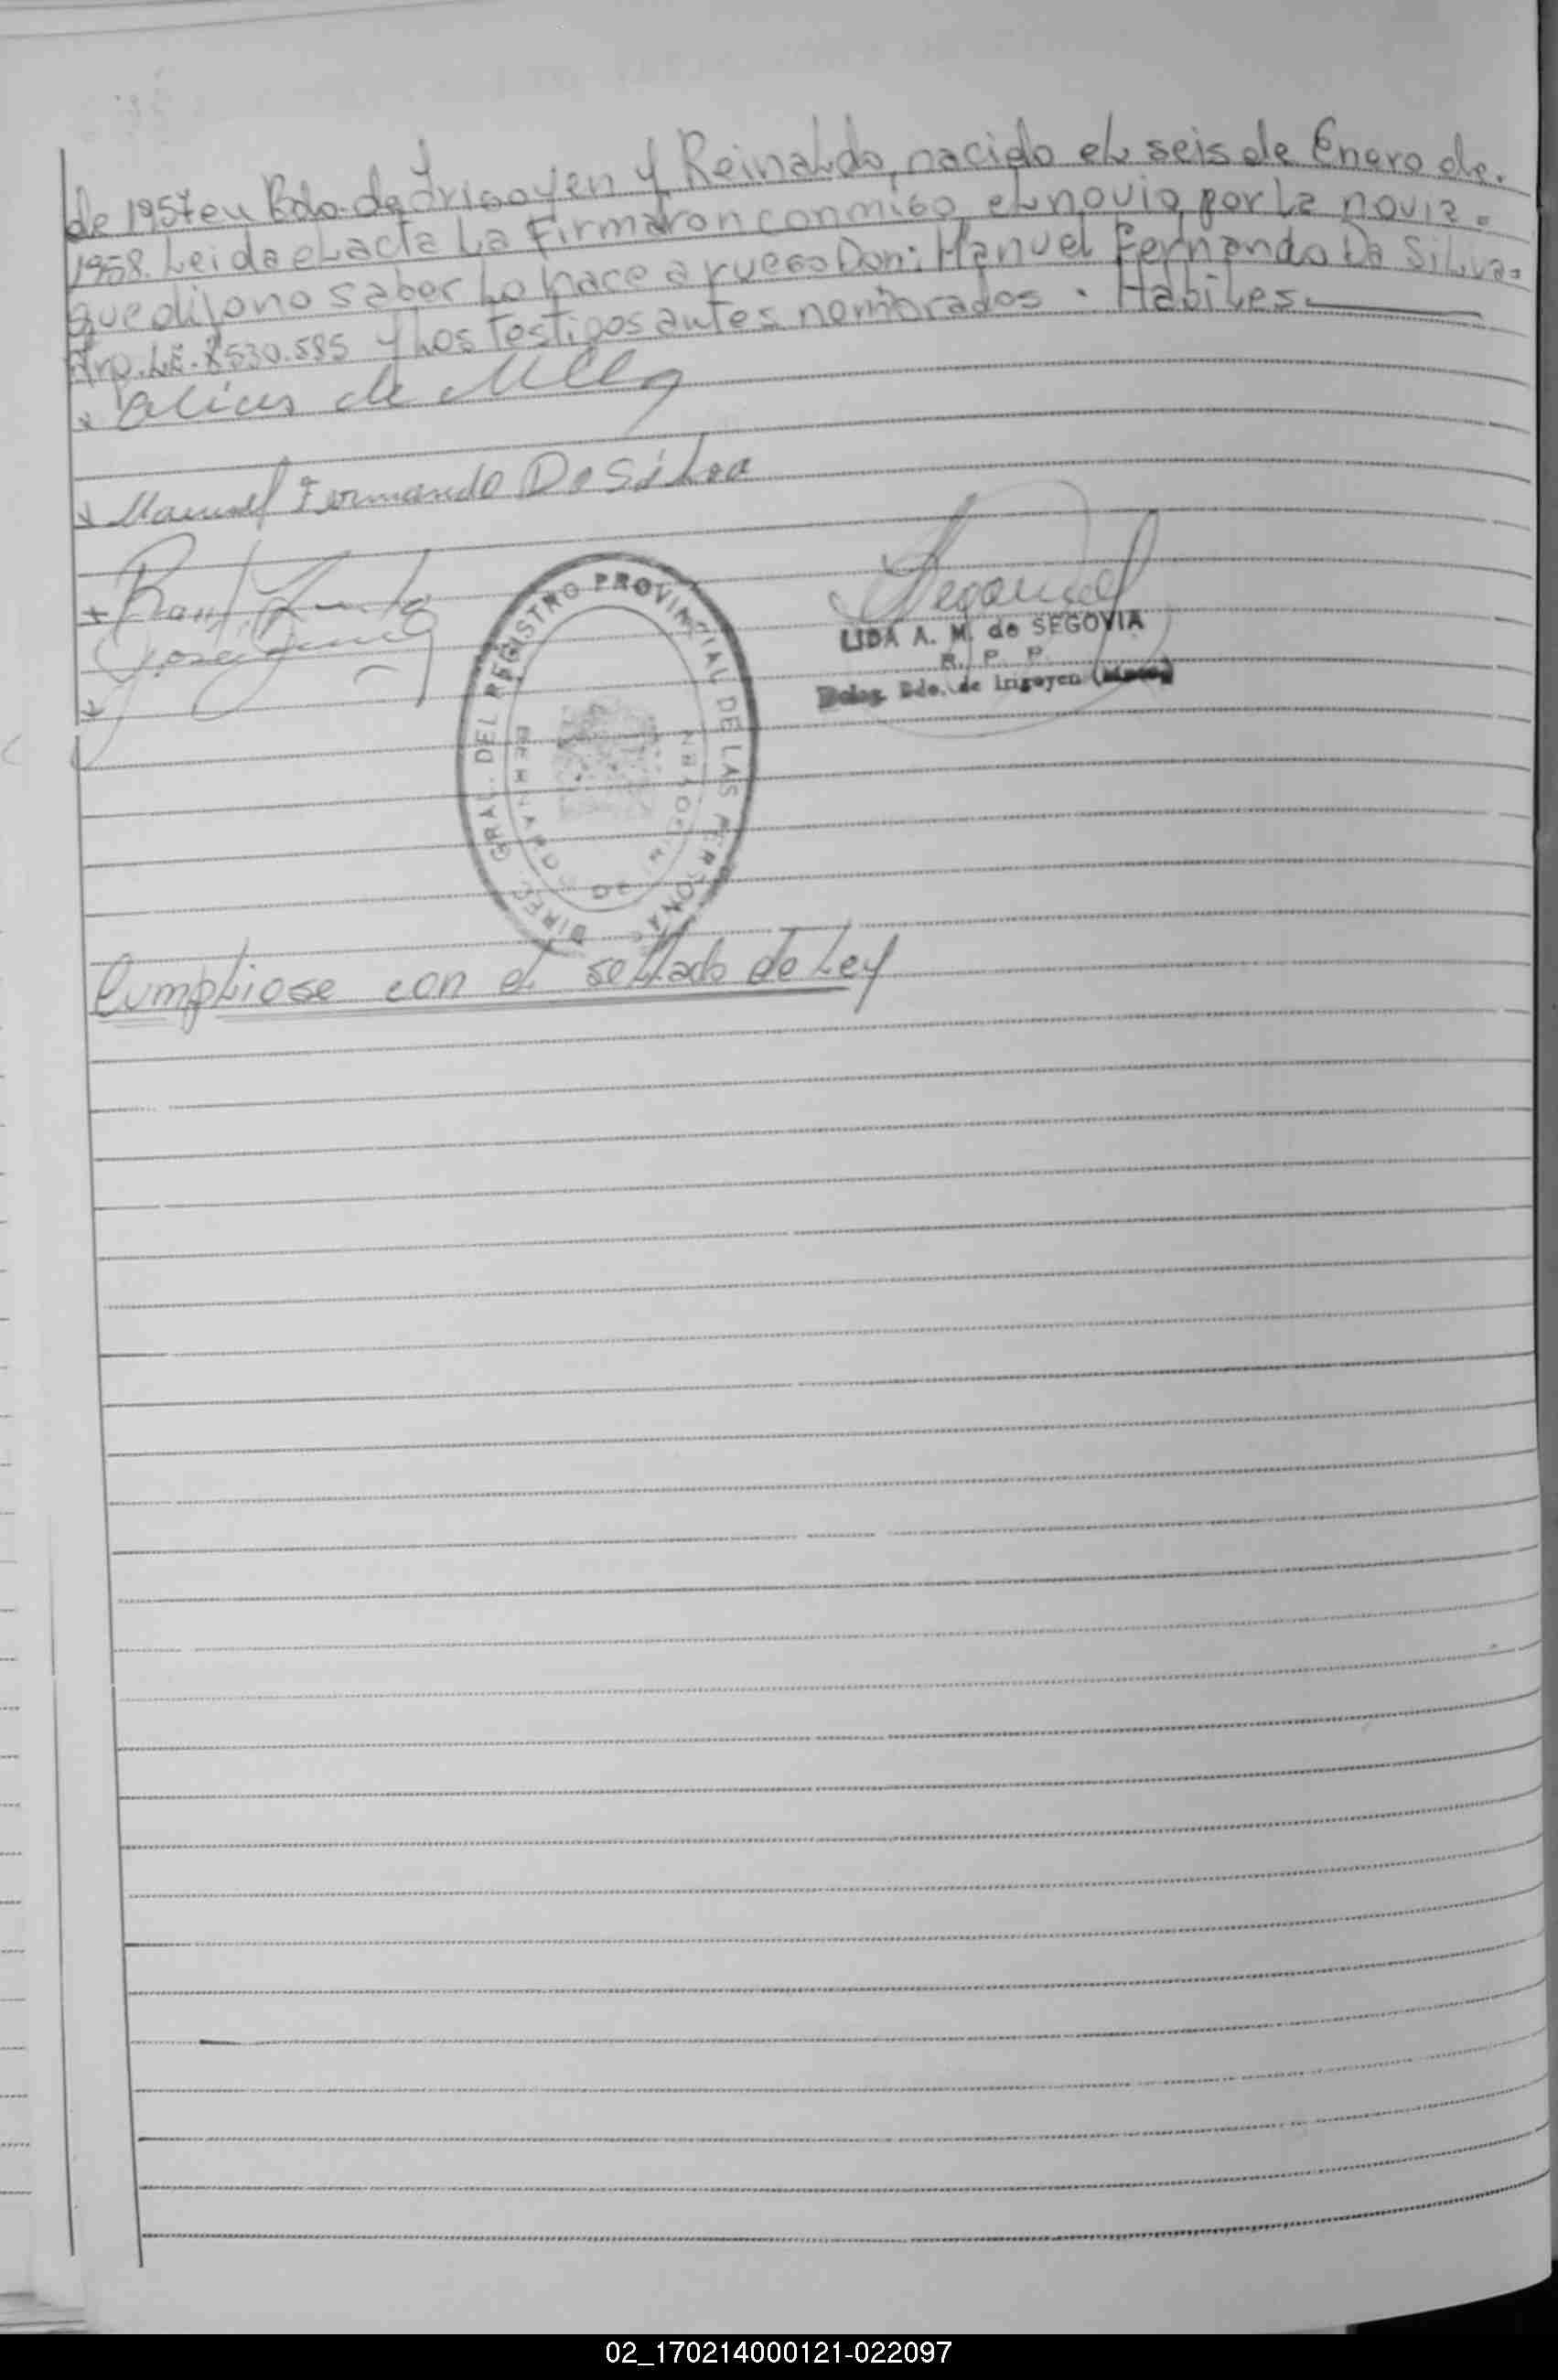 de 1957 en Bdo. de Irigoyen y Reinaldo, nacido el seis de Enero de.
1958. Leida el acta La Firmaron conmigo, el novio, por la novia.
que dijo no saber Lo hace a ruego Don: Manuel Fernando Da Silva=
Arg. LE. 8530.585 y Los Testigos antes nombrados. Habiles.
de
Manuel Fernando Da Silva
DIREC. GRAL. DEL REGISTRO PROVINCIAL DE LAS PERSONAS
BERNARDO DE IRIGOYEN
LIDA A. M. de SEGOVIA
R. P. P.
Deleg. Bdo. de Irigoyen (Mnes)
Cumpliose con el sellado de Ley
02_170214000121-022097